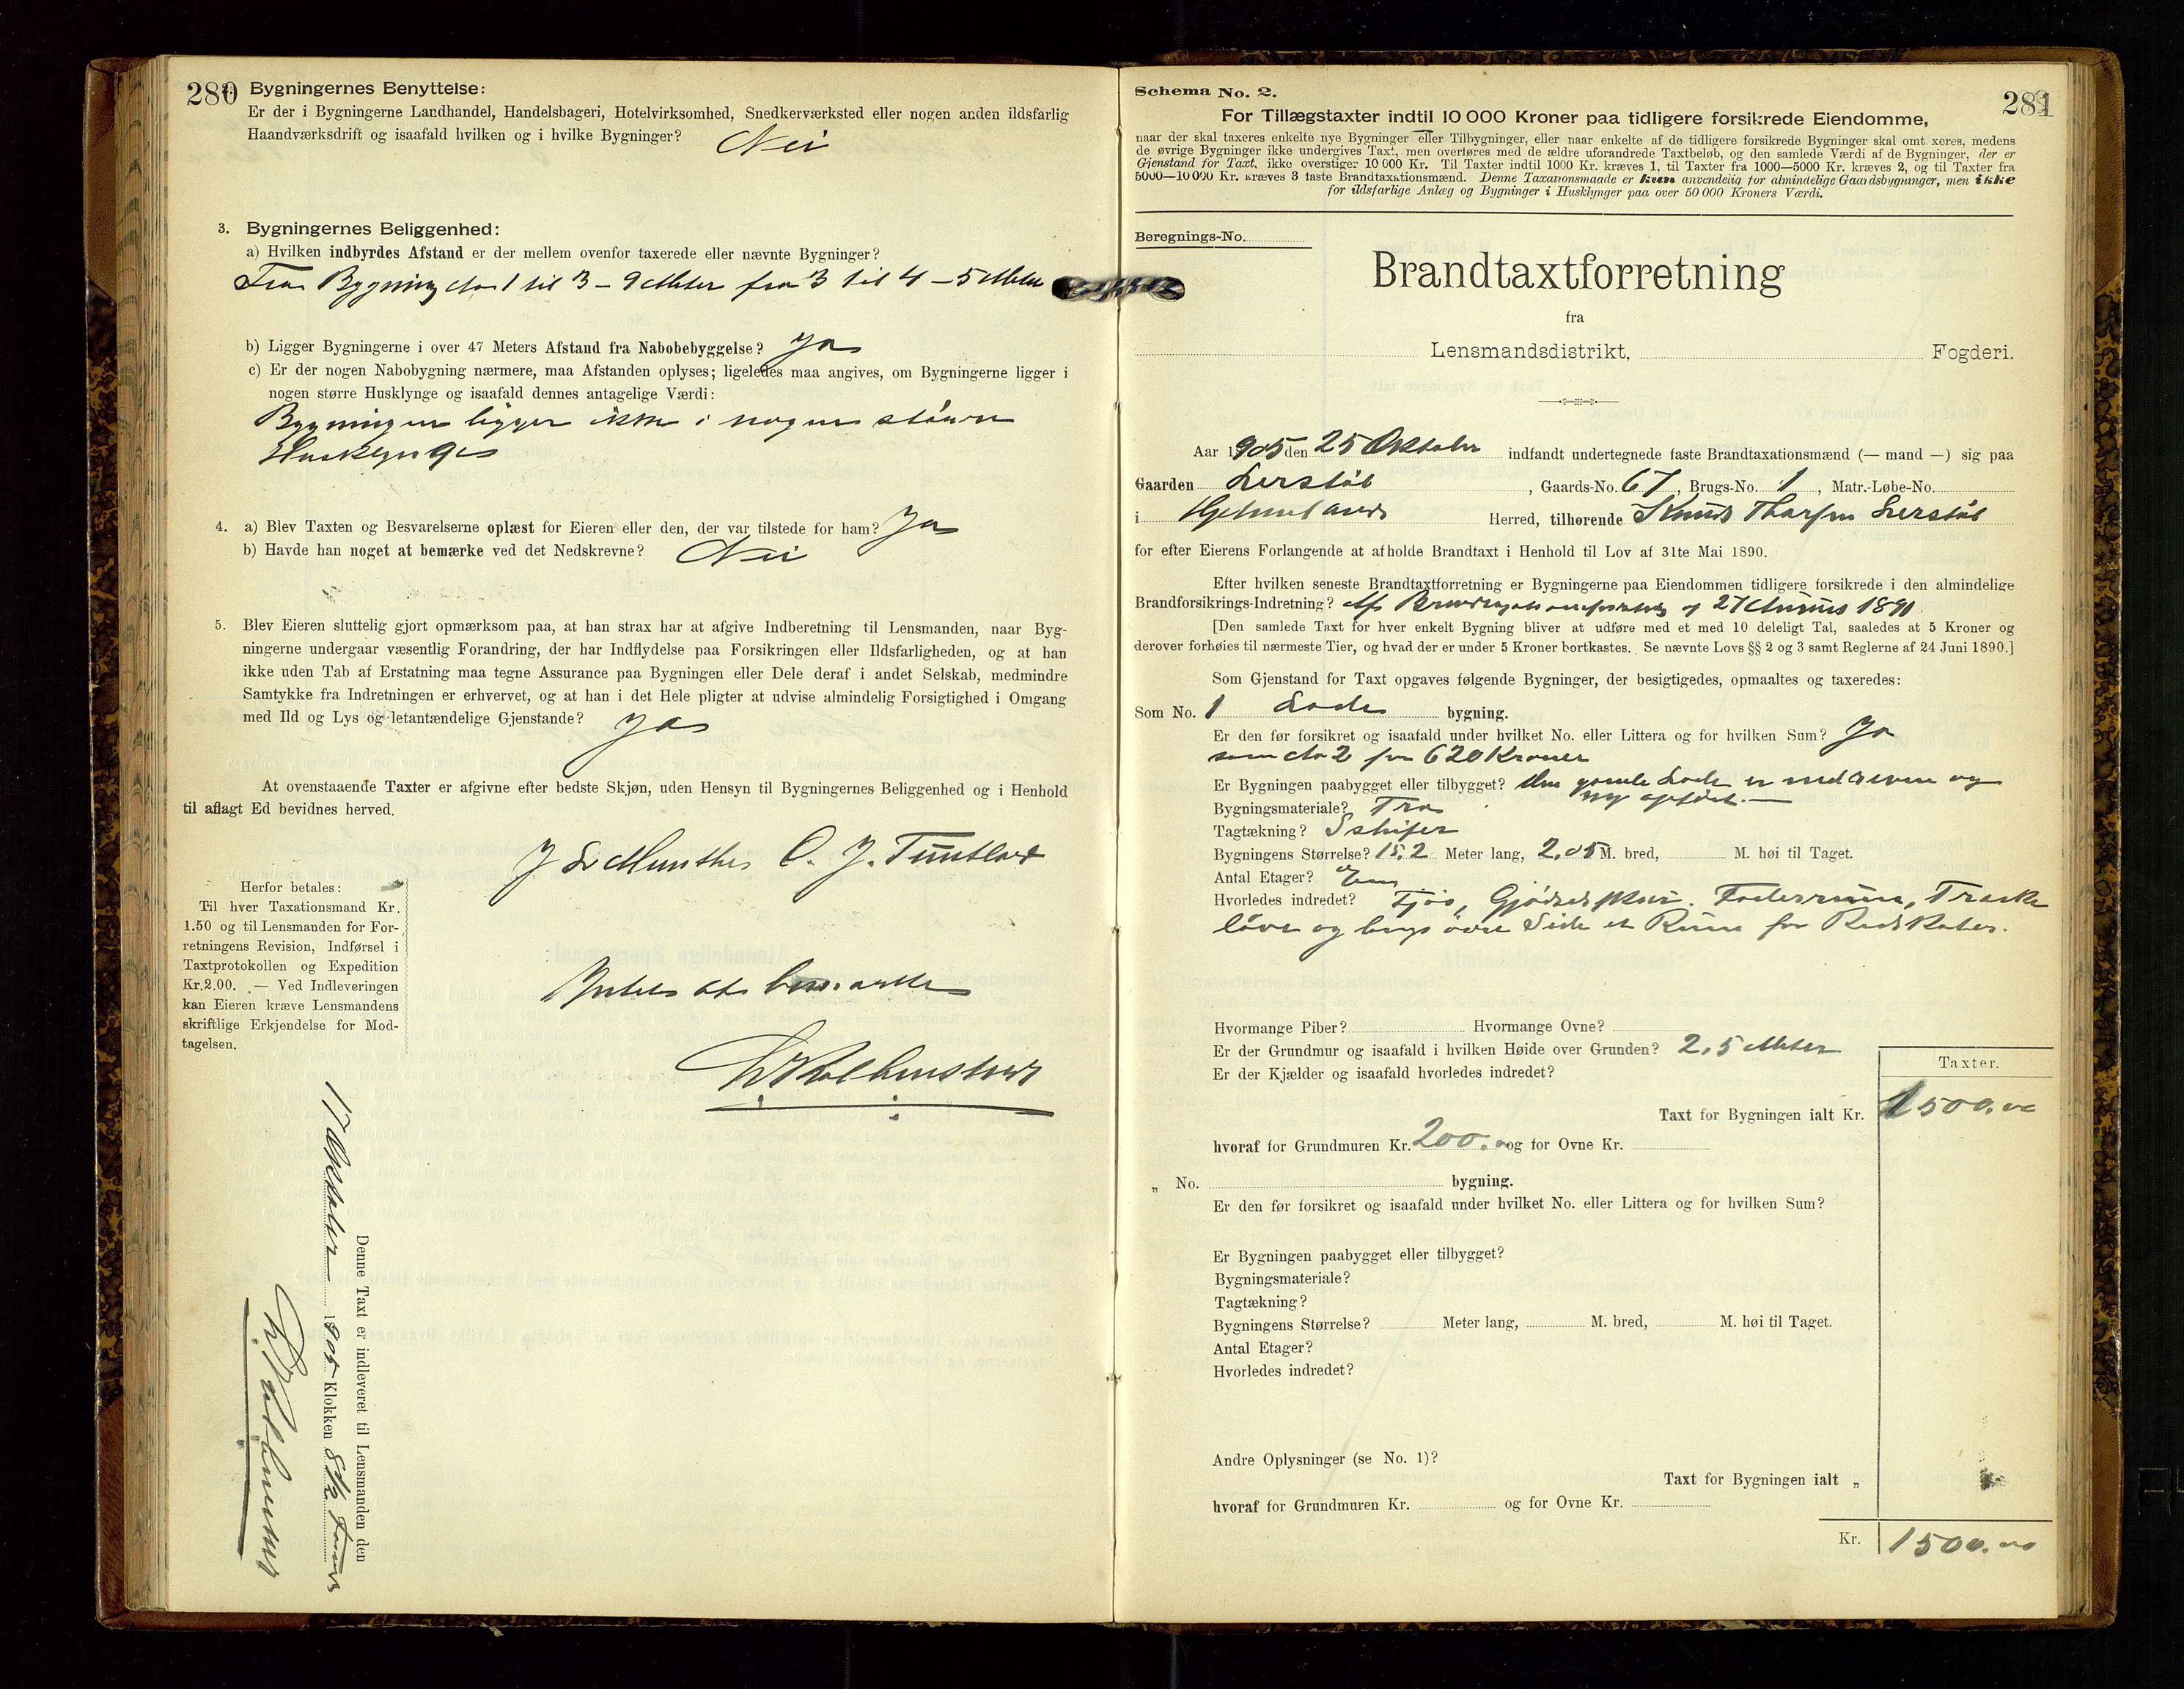 280
Bygningernes Benyttelse:
Er der i Bygningerne Landhandel, Handelsbageri, Hotelvirksomhed, Snedkerværksted eller nogen anden ildsfarlig
Haandværksdrift og isaafald hvilken og i hvilke Bygninger? Nei
3. Bygningernes Beliggenhed:
a) Hvilken indbyrdes Afstand er der mellem ovenfor taxerede eller nævnte Bygninger?
Fra Bygning No 1 til 3 – 9 Meter fra 3 til 4 – 5 Meter
b) Ligger Bygningerne i over 47 Meters Afstand fra Nabobebyggelse? Ja
c) Er der nogen Nabobygning nærmere, maa Afstanden oplyses; ligeledes maa angives, om Bygningerne ligger i
nogen større Husklynge og isaafald dennes antagelige Værdi:
Bygningen ligger ikke i nogen større
Husklynge
4. a) Blev Taxten og Besvarelserne oplæst for Eieren eller den, der var tilstede for ham? Ja
b) Havde han noget at bemærke ved det Nedskrevne? Nei
5. Blev Eieren sluttelig gjort opmærksom paa, at han strax har at afgive Indberetning til Lensmanden, naar Byg-
ningerne undergaar væsentlig Forandring, der har Indflydelse paa Forsikringen eller Ildsfarligheden, og at han
ikke uden Tab af Erstatning maa tegne Assurance paa Bygningen eller Dele deraf i andet Selskab, medmindre
Samtykke fra Indretningen er erhvervet, og at han i det Hele pligter at udvise almindelig Forsigtighed i Omgang
med Ild og Lys og letantændelige Gjenstande? Ja
At ovenstaaende Taxter er afgivne efter bedste Skjøn, uden Hensyn til Bygningernes Beliggenhed og i Henhold
til aflagt Ed bevidnes herved.
O. J.
Herfor betales:
Til hver Taxationsmand Kr.
1.50 og til Lensmanden for For-
retningens Revision, Indførsel i
Taxtprotokollen og Expedition
Kr.2.00. — Ved Indleveringen
kan Eieren kræve Lensmandens
skriftlige Erkjendelse for Mod-
tagelsen.
Intet at bemærke
Denne Taxt er indleveret til Lensmanden den
17 1905 Klokken 8 1/2
Schema No. 2.
281
For Tillægstaxter indtil 10 000 Kroner paa tidligere forsikrede Eiendomme,
naar der skal taxeres enkelte nye Bygninger eller Tilbygninger, eller naar enkelte af de tidligere forsikrede Bygninger skal omtaxeres, medens
de øvrige Bygninger ikke undergives Taxt, men overføres med de ældre uforandrede Taxtbeløb, og den samlede Værdi af de Bygninger, der er
Gjenstand for Taxt, ikke overstiger 10 000 Kr. Til Taxter indtil 1000 Kr. kræves 1, til Taxter fra 1000—5000 Kr. kræves 2, og til Taxter fra
5000—10 000 Kr. kræves 3 faste Brandtaxationsmænd. Denne Taxationsmaade er kun anvendelig for almindelige Gaardsbygninger, men ikke
for ildsfarlige Anlæg og Bygninger i Husklynger paa over 50 000 Kroners Værdi.
Beregnings-No.
Brandtaxtforretning
fra
Lensmandsdistrikt, Fogderi.
Aar 1905 den 25 Oktober indfandt undertegnede faste Brandtaxationsmænd (— mand —) sig paa
Gaarden , Gaards-No. 67, Brugs-No. 1, Matr.-Løbe-No.
i Hjelmelands Herred, tilhørende Knud
for efter Eierens Forlangende at afholde Brandtaxt i Henhold til Lov af 31te Mai 1890.
Efter hvilken seneste Brandtaxtforretning er Bygningerne paa Eiendommen tidligere forsikrede i den almindelige
Brandforsikrings-Indretning? 27 1890.
[Den samlede Taxt for hver enkelt Bygning bliver at udføre med et med 10 deleligt Tal, saaledes at 5 Kroner og
derover forhøies til nærmeste Tier, og hvad der er under 5 Kroner bortkastes. Se nævnte Lovs §§ 2 og 3 samt Reglerne af 24 Juni 1890.]
Som Gjenstand for Taxt opgaves følgende Bygninger, der besigtigedes, opmaaltes og taxeredes:
Som No. 1 Lade bygning.
Er den før forsikret og isaafald under hvilket No. eller Littera og for hvilken Sum? Ja
som No 2 for 620 Kroner
Er Bygningen paabygget eller tilbygget? Den gamle Lade er nedreven og
ny opført. —
Bygningsmateriale? Træ
Tagtækning? Schifer
Bygningens Størrelse? 15,2 Meter lang, 2,05 M. bred, M. høi til Taget.
Antal Etager? en
Hvorledes indredet? Fjøs, Gjødselskur. Foderrum, Træske
låve og langs øvre Side et Rum for Redskaber.
Hvormange Piber? Hvormange Ovne?
Er der Grundmur og isaafald i hvilken Høide over Grunden? 2,5 Meter
Er der Kjælder og isaafald hvorledes indredet?
Taxter.
Taxt for Bygningen ialt Kr. 1500.00
hvoraf for Grundmuren Kr. 200.00 og for Ovne Kr.
„ No. bygning.
Er den før forsikret og isaafald under hvilket No. eller Littera og for hvilken Sum?
Er Bygningen paabygget eller tilbygget?
Bygningsmateriale?
Tagtækning?
Bygningens Størrelse? Meter lang, M. bred, M. høi til Taget.
Antal Etager?
Hvorledes indredet?
Andre Oplysninger (se No. 1)?
Taxt for Bygningen ialt „
hvoraf for Grundmuren Kr. og for Ovne Kr.
Kr. 1500.00